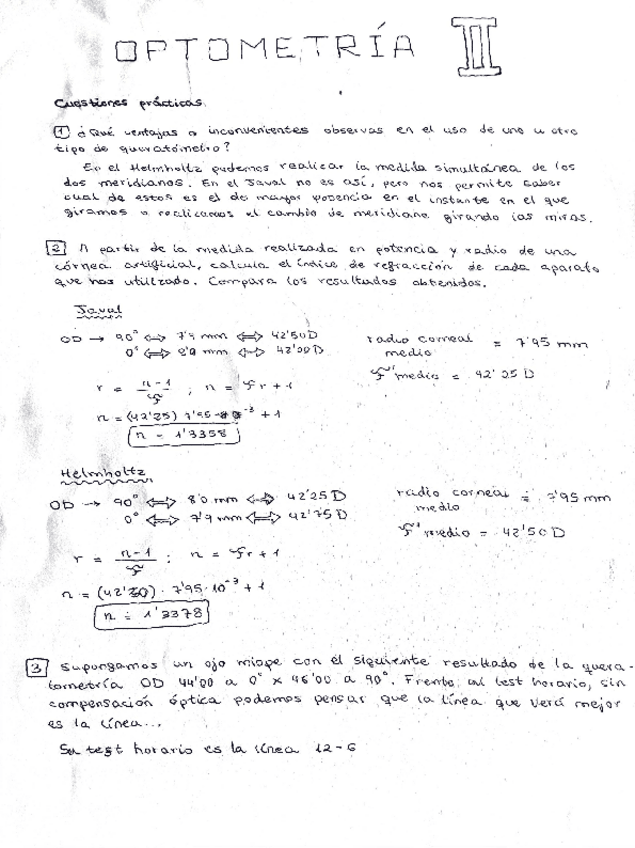 OPTOMETRÍA II
Cuestiones prácticas
1 ¿Qué ventajas o inconvenientes observas en el uso de uno u otro
tipo de queratómetro?
En el Helmholtz podemos realizar la medida simultánea de los
dos meridianos. En el Javal no es así, pero nos permite saber
cual de estos es el de mayor potencia en el instante en el que
giramos o realizamos el cambio de meridiano girando las miras.
2 A partir de la medida realizada en potencia y radio de una
córnea artificial, calcula el índice de refracción de cada aparato
que has utilizado. Compara los resultados obtenidos.
Javal
OD → 90° ⇔ 7'9 mm ⇔ 42'50D
0° ⇔ 8'0 mm ⇔ 42'00D
radio corneal medio = 7'95 mm
f' medio = 42'25 D
r = n-1/f' ; n = f'r + 1
n = (42'25) 7'95·10⁻³ + 1
n = 1'3358
Helmholtz
OD → 90° ⇔ 8'0 mm ⇔ 42'25D
0° ⇔ 7'9 mm ⇔ 42'75D
radio corneal medio = 7'95 mm
f' medio = 42'50 D
r = n-1/f' ; n = f'r + 1
n = (42'50) · 7'95·10⁻³ + 1
n = 1'3378
3 Supongamos un ojo miope con el siguiente resultado de la quera-
tometría OD 44'00 a 0° x 46'00 a 90°. Frente al test horario, sin
compensación óptica podemos pensar que la línea que verá mejor
es la línea...
Su test horario es la línea 12-6